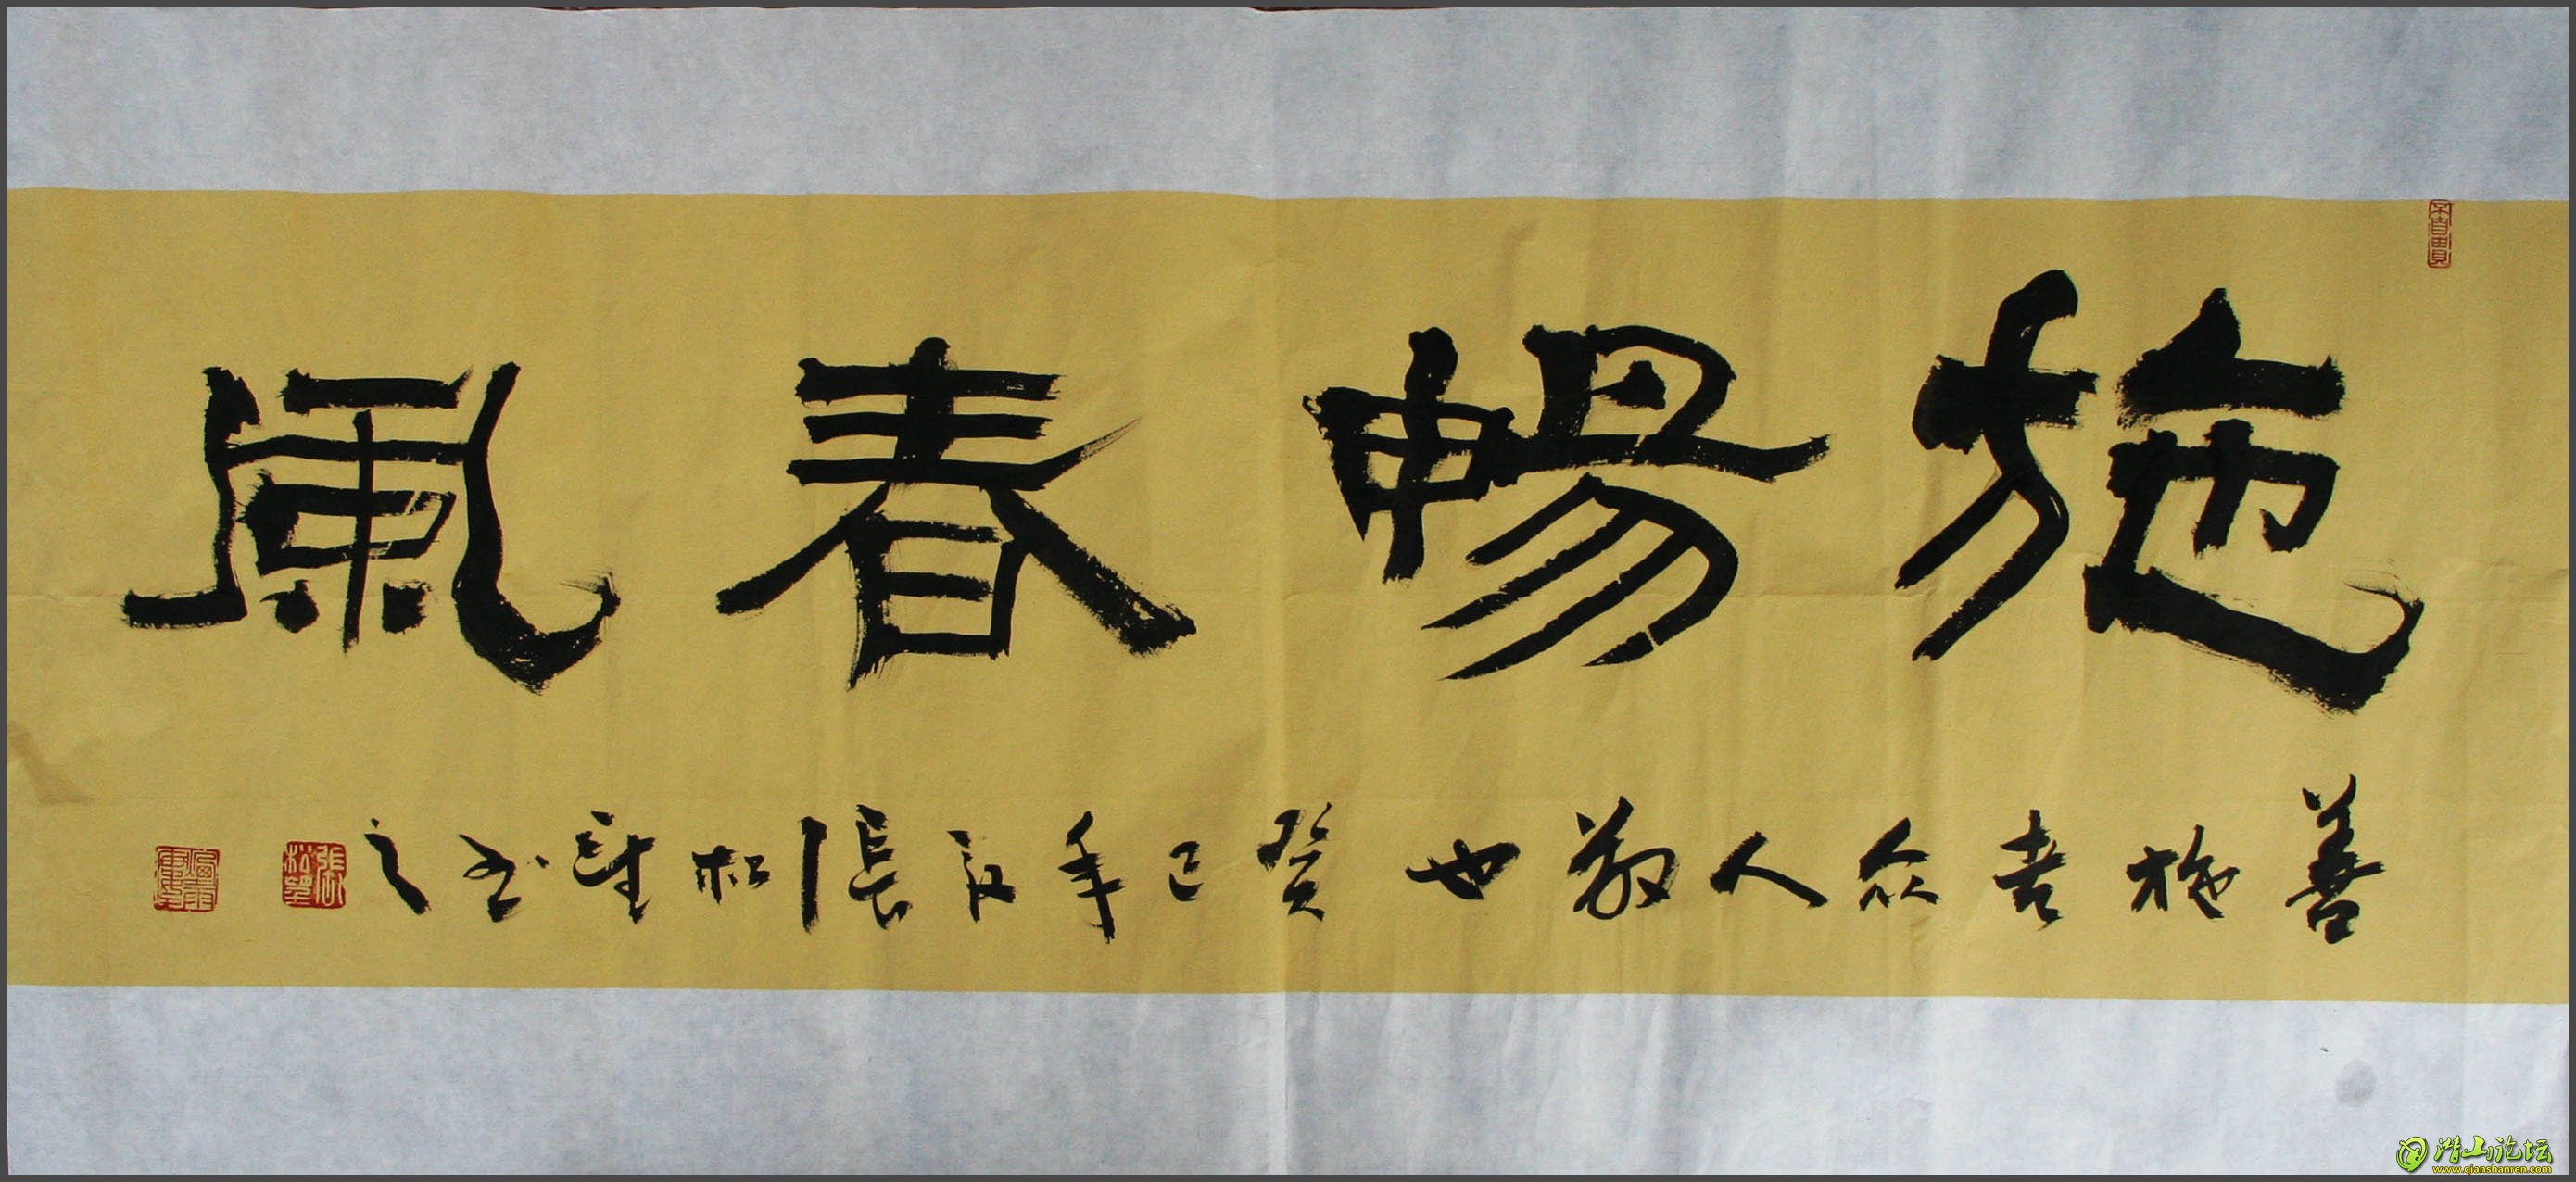 施暢春風
善施者众人敬也癸巳年夏張松望书之
潜山论坛
www.qianshanren.com